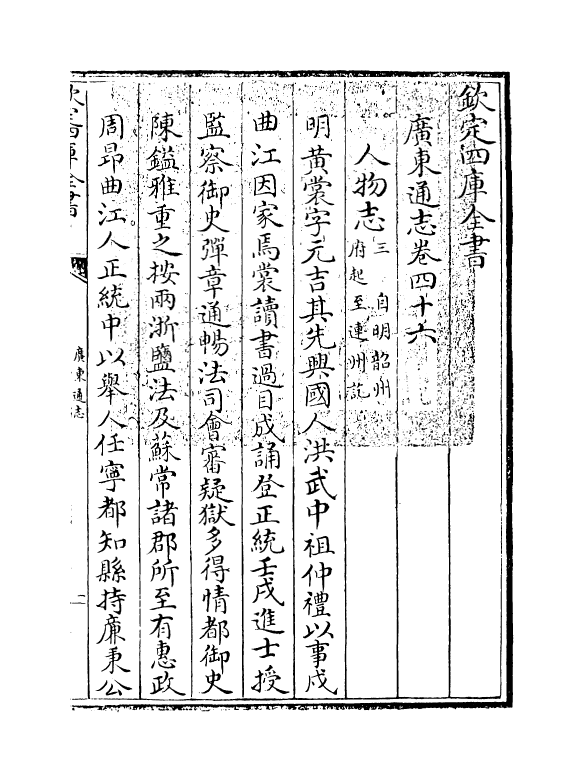 欽定四庫全書
廣東通志卷四十六
人物志三 自明韶州府起至連州訖
明黃裳字元吉其先興國人洪武中祖仲禮以事戍
曲江因家焉裳讀書過目成誦登正統壬戌進士授
監察御史彈章通暢法司會審疑獄多得情都御史
陳鎰雅重之按兩浙鹽法及蘇常諸郡所至有惠政
周昂曲江人正統中以舉人任寧都知縣持廉秉公
欽定四庫全書
廣東通志